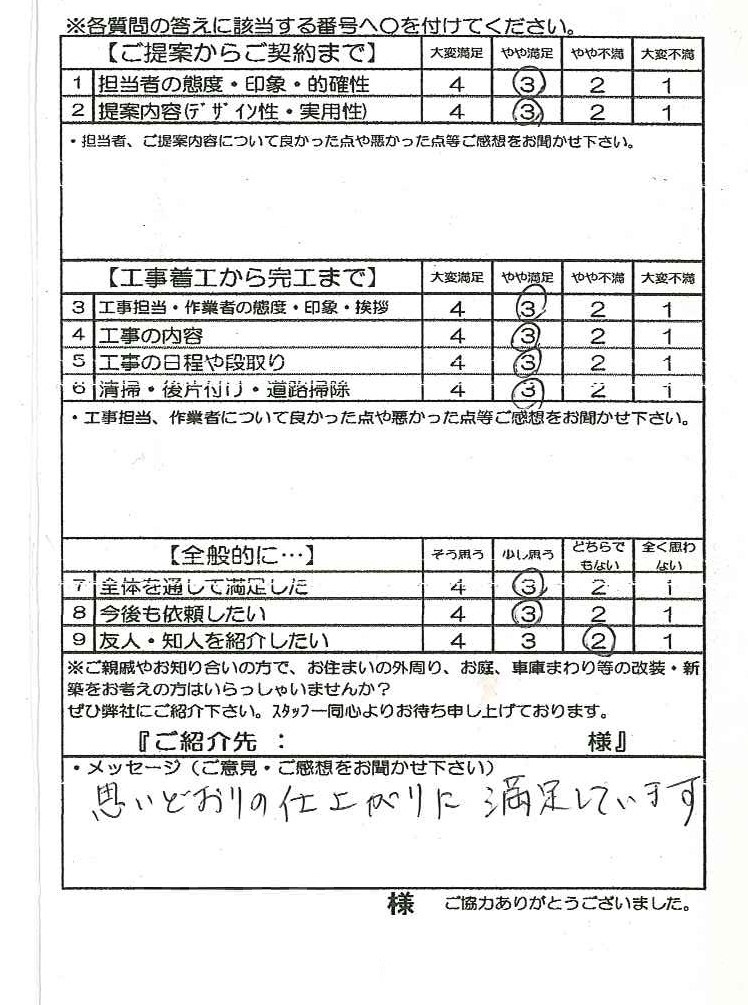 ※各質問の答えに該当する番号へ〇を付けてください。
【ご提案からご契約まで】 大変満足 やや満足 やや不満 大変不満
1 担当者の態度・印象・的確性 4 3 2 1
2 提案内容(ﾃﾞｻﾞｲﾝ性・実用性) 4 3 2 1
・担当者、ご提案内容について良かった点や悪かった点等ご感想をお聞かせ下さい。
【工事着工から完工まで】 大変満足 やや満足 やや不満 大変不満
3 工事担当・作業者の態度・印象・挨拶 4 3 2 1
4 工事の内容 4 3 2 1
5 工事の日程や段取り 4 3 2 1
6 清掃・後片付け・道路掃除 4 3 2 1
・工事担当、作業者について良かった点や悪かった点等ご感想をお聞かせ下さい。
【全般的に…】 そう思う 少し思う どちらでもない 全く思わない
7 全体を通して満足した 4 3 2 1
8 今後も依頼したい 4 3 2 1
9 友人・知人を紹介したい 4 3 2 1
※ご親戚やお知り合いの方で、お住まいの外周り、お庭、車庫まわり等の改装・新
築をお考えの方はいらっしゃいませんか？
ぜひ弊社にご紹介下さい。ｽﾀｯﾌ一同心よりお待ち申し上げております。
『ご紹介先 : 様』
・メッセージ（ご意見・ご感想をお聞かせ下さい）
思いどおりの仕上がりに満足しています
様 ご協力ありがとうございました。